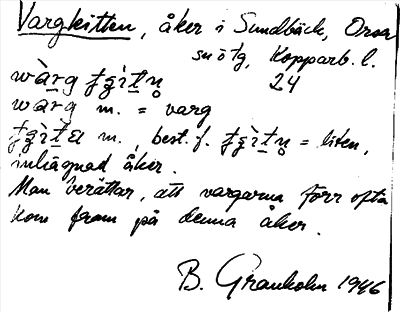 Vargkitten, åker i Sundbäck, Orsa
sn ö tg, Kopparb. l.
24
wàrg
wàrg m. = varg
m., best. f. = liten,
inhägnad åker.
Man berättar, att vargarna förr ofta
kom fram på denna åker.
B. Granholm 1946